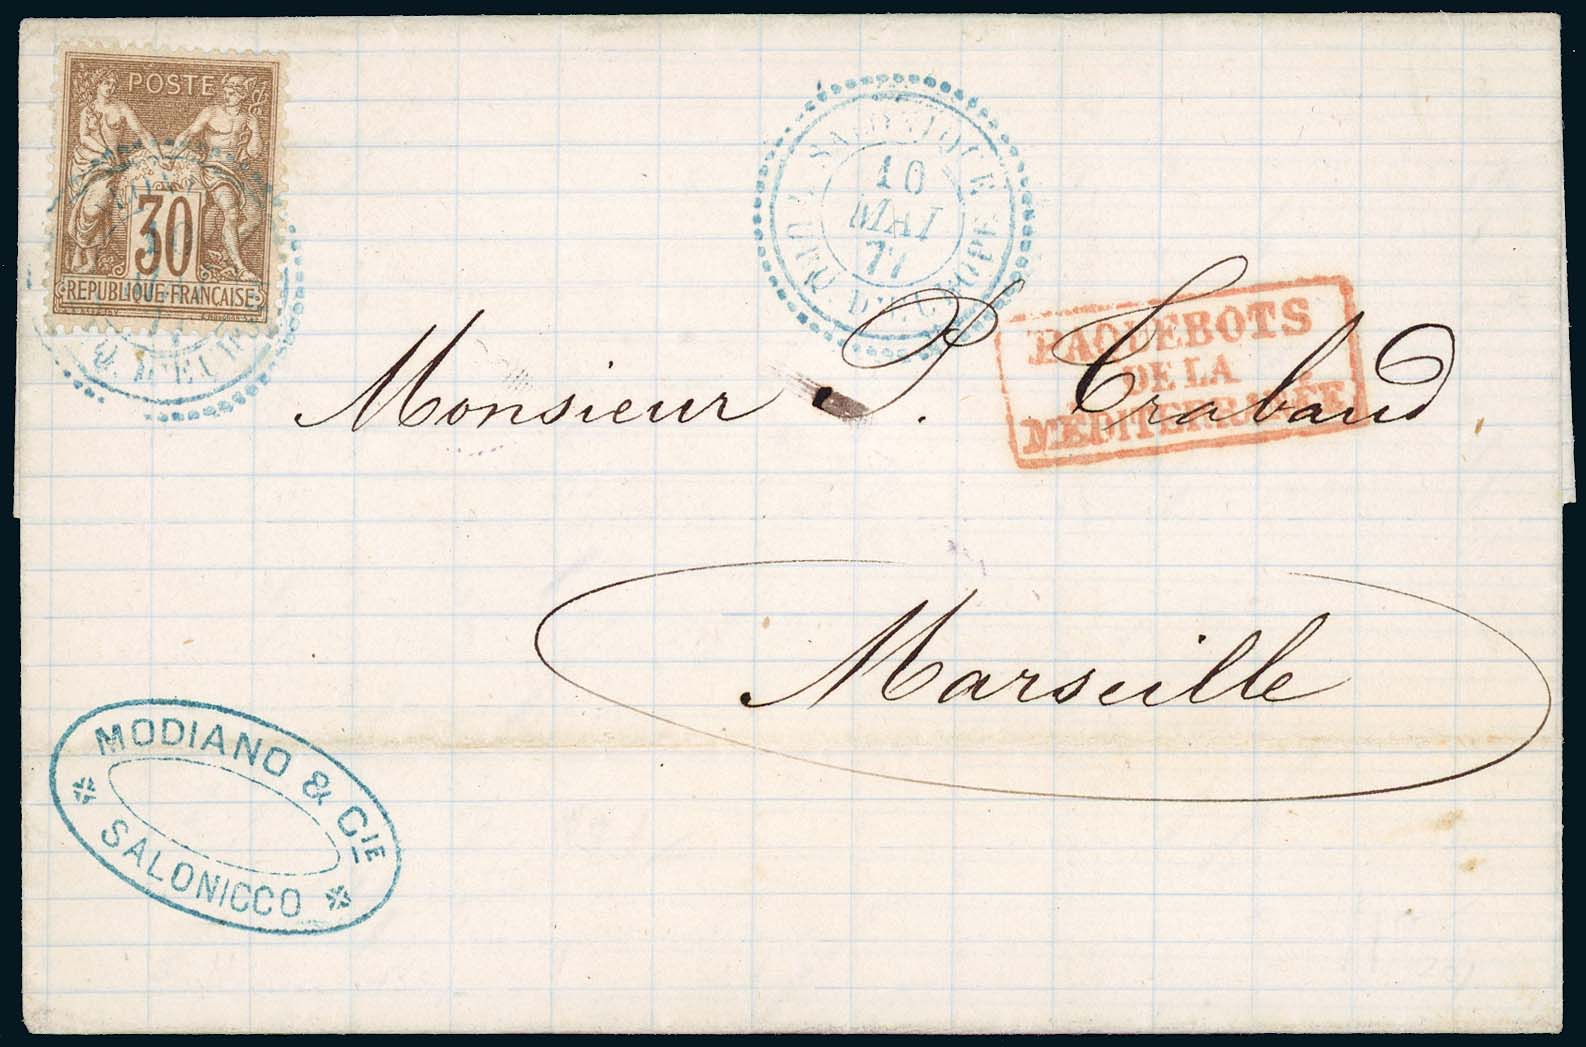 POSTE
30
REPUBLIQUE FRANCAISE
SALONIQUE
TURQ. D'EUROPE
10
MAI
77
PAQUEBOTS
DE LA
MEDITERRANÉE
Monsieur P. Trabaud
Marseille
MODIANO & CIE
SALONICCO